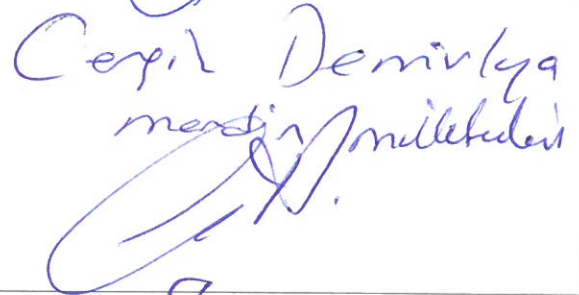 Cengiz Demirkaya
mardin milletvekili